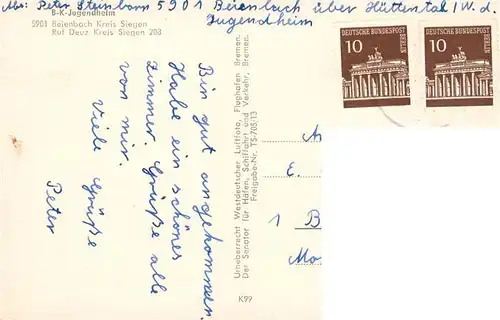 Abs: Peter Steinborn 5901 Beienbach über Hüttental/W. d.
Jugendheim
B-K-Jugendheim
5901 Beienbach Kreis Siegen
Ruf Deuz Kreis Siegen 203
DEUTSCHE BUNDESPOST
BERLIN
10
DEUTSCHE BUNDESPOST
BERLIN
10
Bin gut angekommen.
Habe ein schönes
Zimmer. Grüße alle
von mir.
Viele Grüße
Peter
Urheberrecht Westdeutscher Luftfoto, Flughafen Bremen.
Der Senator für Häfen, Schiffahrt und Verkehr, Bremen.
Freigabe-Nr. TS-705/13
K99
E.
1 B
Mo